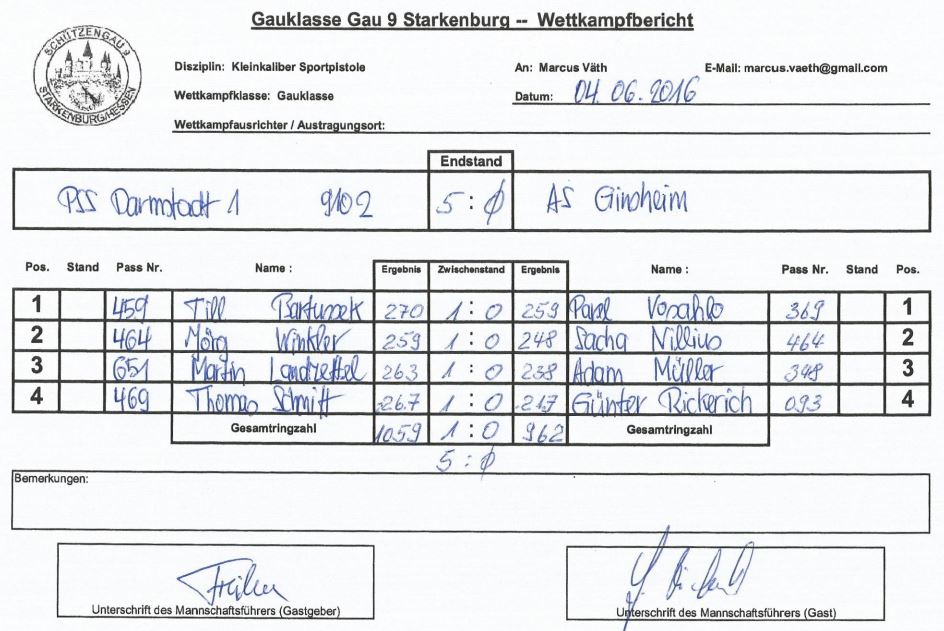 Gauklasse Gau 9 Starkenburg -- Wettkampfbericht
SCHÜTZENGAU 9
STARKENBURG/HESSEN
Disziplin: Kleinkaliber Sportpistole An: Marcus Väth E-Mail: marcus.vaeth@gmail.com
Wettkampfklasse: Gauklasse Datum: 04.06.2016
Wettkampfausrichter / Austragungsort:
Endstand
PSS Darmstadt 1 9102 5:0 AS Ginsheim
Pos. Stand Pass Nr. Name : Ergebnis Zwischenstand Ergebnis Name : Pass Nr. Stand Pos.
1 459 Till Bartussek 270 1:0 259 Pavel Vosahlo 369 1
2 464 Jörg Winkler 259 1:0 248 Sacha Nillius 464 2
3 651 Martin Landzettel 263 1:0 238 Adam Müller 348 3
4 469 Thomas Schmitt 267 1:0 217 Günter Rickerich 093 4
Gesamtringzahl 1059 1:0 962 Gesamtringzahl
5:0
Bemerkungen:
Unterschrift des Mannschaftsführers (Gastgeber) Unterschrift des Mannschaftsführers (Gast)